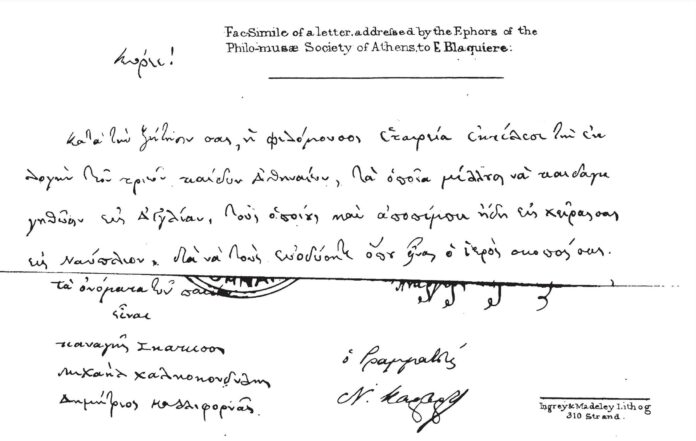 Fac-Simile of a letter, addressed by the Ephors of the
Philo-musæ Society of Athens, to E Blaquiere:
Κύριε!
Κατὰ τὴν ζήτησιν σας, ἡ φιλόμουσος ἑταιρεία ἐκτέλεσε τὴν ἐκ
λογὴν τῶν τριῶν παίδων Ἀθηναίων, τὰ ὁποῖα μέλλει νὰ παιδαγω
γηθῶσιν εἰς Ἀγγλίαν, τοὺς ὁποίους καὶ ἀποπέμπει ἤδη εἰς χεῖρας σας
εἰς Ναύπλιον, διὰ νὰ τοὺς εὐοδώσητε ὅπου εἶναι ὁ ἱερὸς σκοπός σας.
τὰ ὀνόματα τῶν
εἶναι
Παναγῆς
Μιχαὴλ Χαλκοκονδύλης
Δημήτριος Καλλιφορνᾶς
ὁ Γραμματεὺς
Ν.
Ingrey & Madeley Lithog
310 Strand.